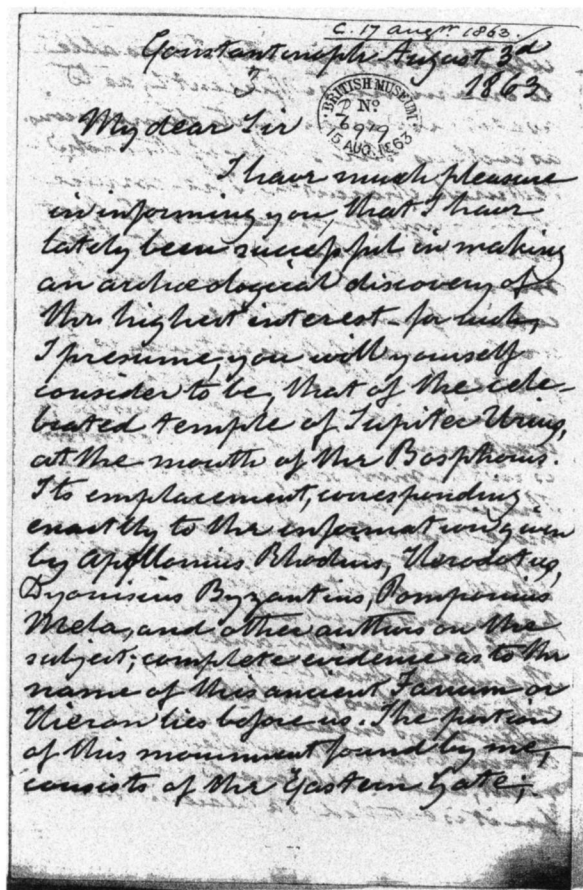 C. 17 Augst 1863.
Constantinople August 3d
1863
BRITISH MUSEUM
No
6919
15 AUG. 1863
My dear Sir
I have much pleasure
in informing you, that I have
lately been successful in making
an archæological discovery of
the highest interest - for such,
I presume, you will yourself
consider to be, that of the cele-
brated temple of Jupiter Urius,
at the mouth of the Bosphorus.
Its emplacement, corresponding
exactly to the information given
by Apollonius Rhodius, Herodotus,
Dyonisius Byzantius, Pomponius
Mela, and other authors on the
subject; complete evidence as to the
name of this ancient Fanum or
Hieron lies before us. The portion
of this monument found by me,
consists of the Eastern Gate;